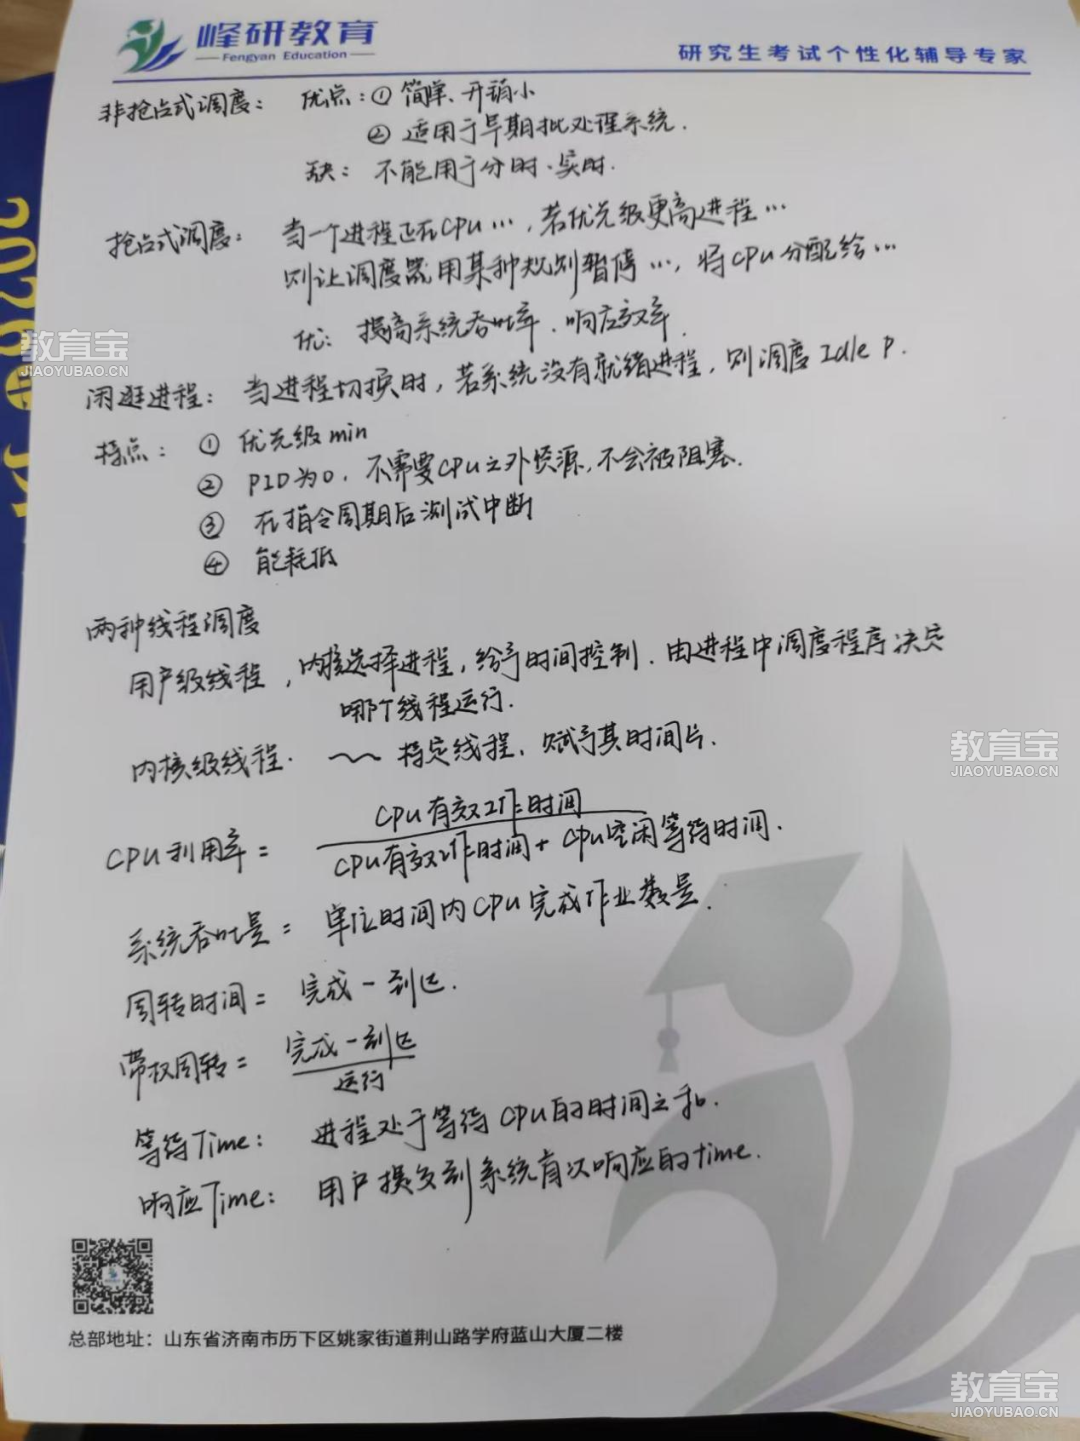 峰研教育
Fengyan Education
研究生考试个性化辅导专家
非抢占式调度： 优点：① 简单、开销小
② 适用于早期批处理系统.
缺： 不能用于分时、实时.
抢占式调度： 当一个进程正在CPU…，若优先级更高进程…
则让调度器用某种规则暂停…，将CPU分配给…
优： 提高系统吞吐率、响应效率.
闲逛进程： 当进程切换时，若系统没有就绪进程，则调度 Idle P.
特点： ① 优先级 min
② PID为0，不需要CPU之外资源，不会被阻塞.
③ 在指令周期后测试中断
④ 能耗低
两种线程调度
用户级线程，内核选择进程，给予时间控制．由进程中调度程序决定
哪个线程运行.
内核级线程． ～～ 特定线程，赋予其时间片.
CPU有效工作时间
CPU利用率＝
CPU有效工作时间＋CPU空闲等待时间.
系统吞吐量＝ 单位时间内CPU完成作业数量.
周转时间＝ 完成－到达.
完成－到达
带权周转＝
运行
等待Time： 进程处于等待CPU的时间之和.
响应Time： 用户提交到系统首次响应的time.
总部地址：山东省济南市历下区姚家街道荆山路学府蓝山大厦二楼
教育宝
JIAOYUBAO.CN
教育宝
JIAOYUBAO.CN
教育宝
JIAOYUBAO.CN